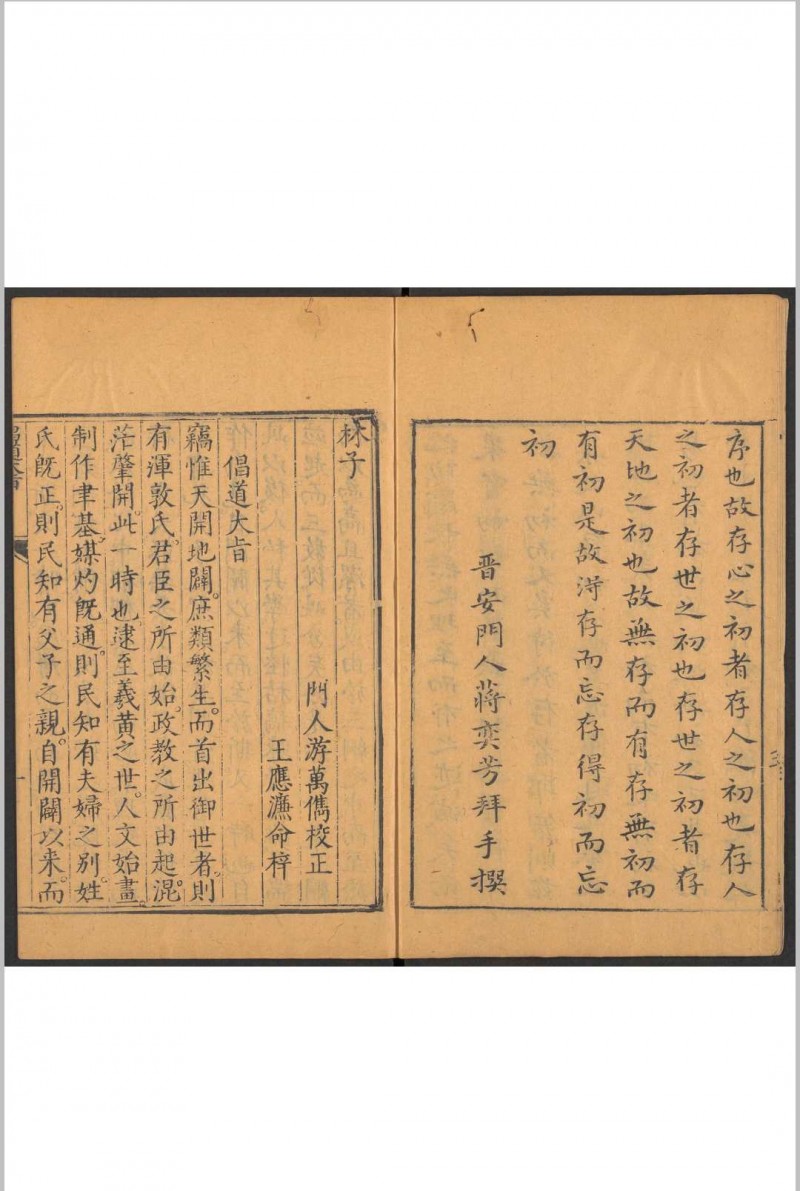 序也故存心之初者存人之初也存人
之初者存世之初也存世之初者存
天地之初也故無存而有存無初而
有初是故得存而忘存得初而忘
初
晉安門人蔣奕芳拜手撰
林子
門人游萬儁校正
王應濂命梓
倡道大旨
竊惟天開地闢。庶類繁生。而首出御世者。則
有渾敦氏。君臣之所由始。政教之所由起。混
茫肇開。此一時也。逮至羲黃之世。人文始畫。
制作聿基。媒灼旣通。則民知有夫婦之別。姓
氏旣正。則民知有父子之親。自開闢以来。而